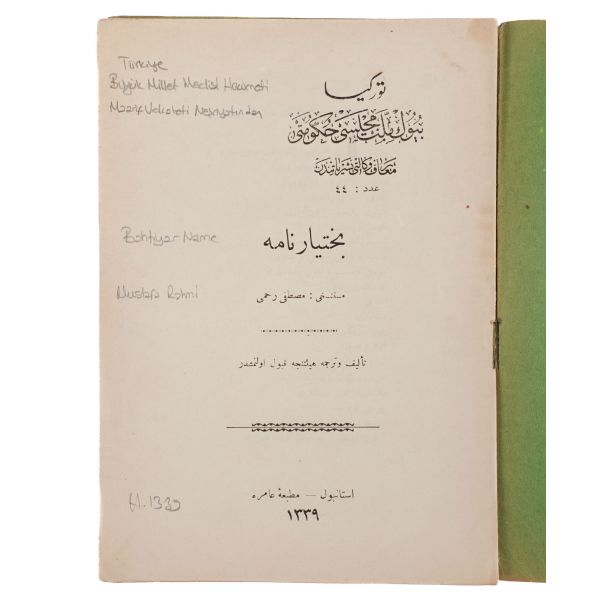 توركيا
بيوك ملت مجلسى حكومتى
معارف وكالتى نشرياتندن
عدد : ٤٤
بختيار نامه
مستنسخى : مصطفى رحمى
تأليف و ترجمه هيئتنجه قبول اولنمشدر
استانبول — مطبعهٔ عامره
١٣٣٩
Türkiye
Büyük Millet Meclisi Hükümeti
Maarif Vekaleti Neşriyatından
Bahtiyar Name
Mustafa Rahmi
H.1339